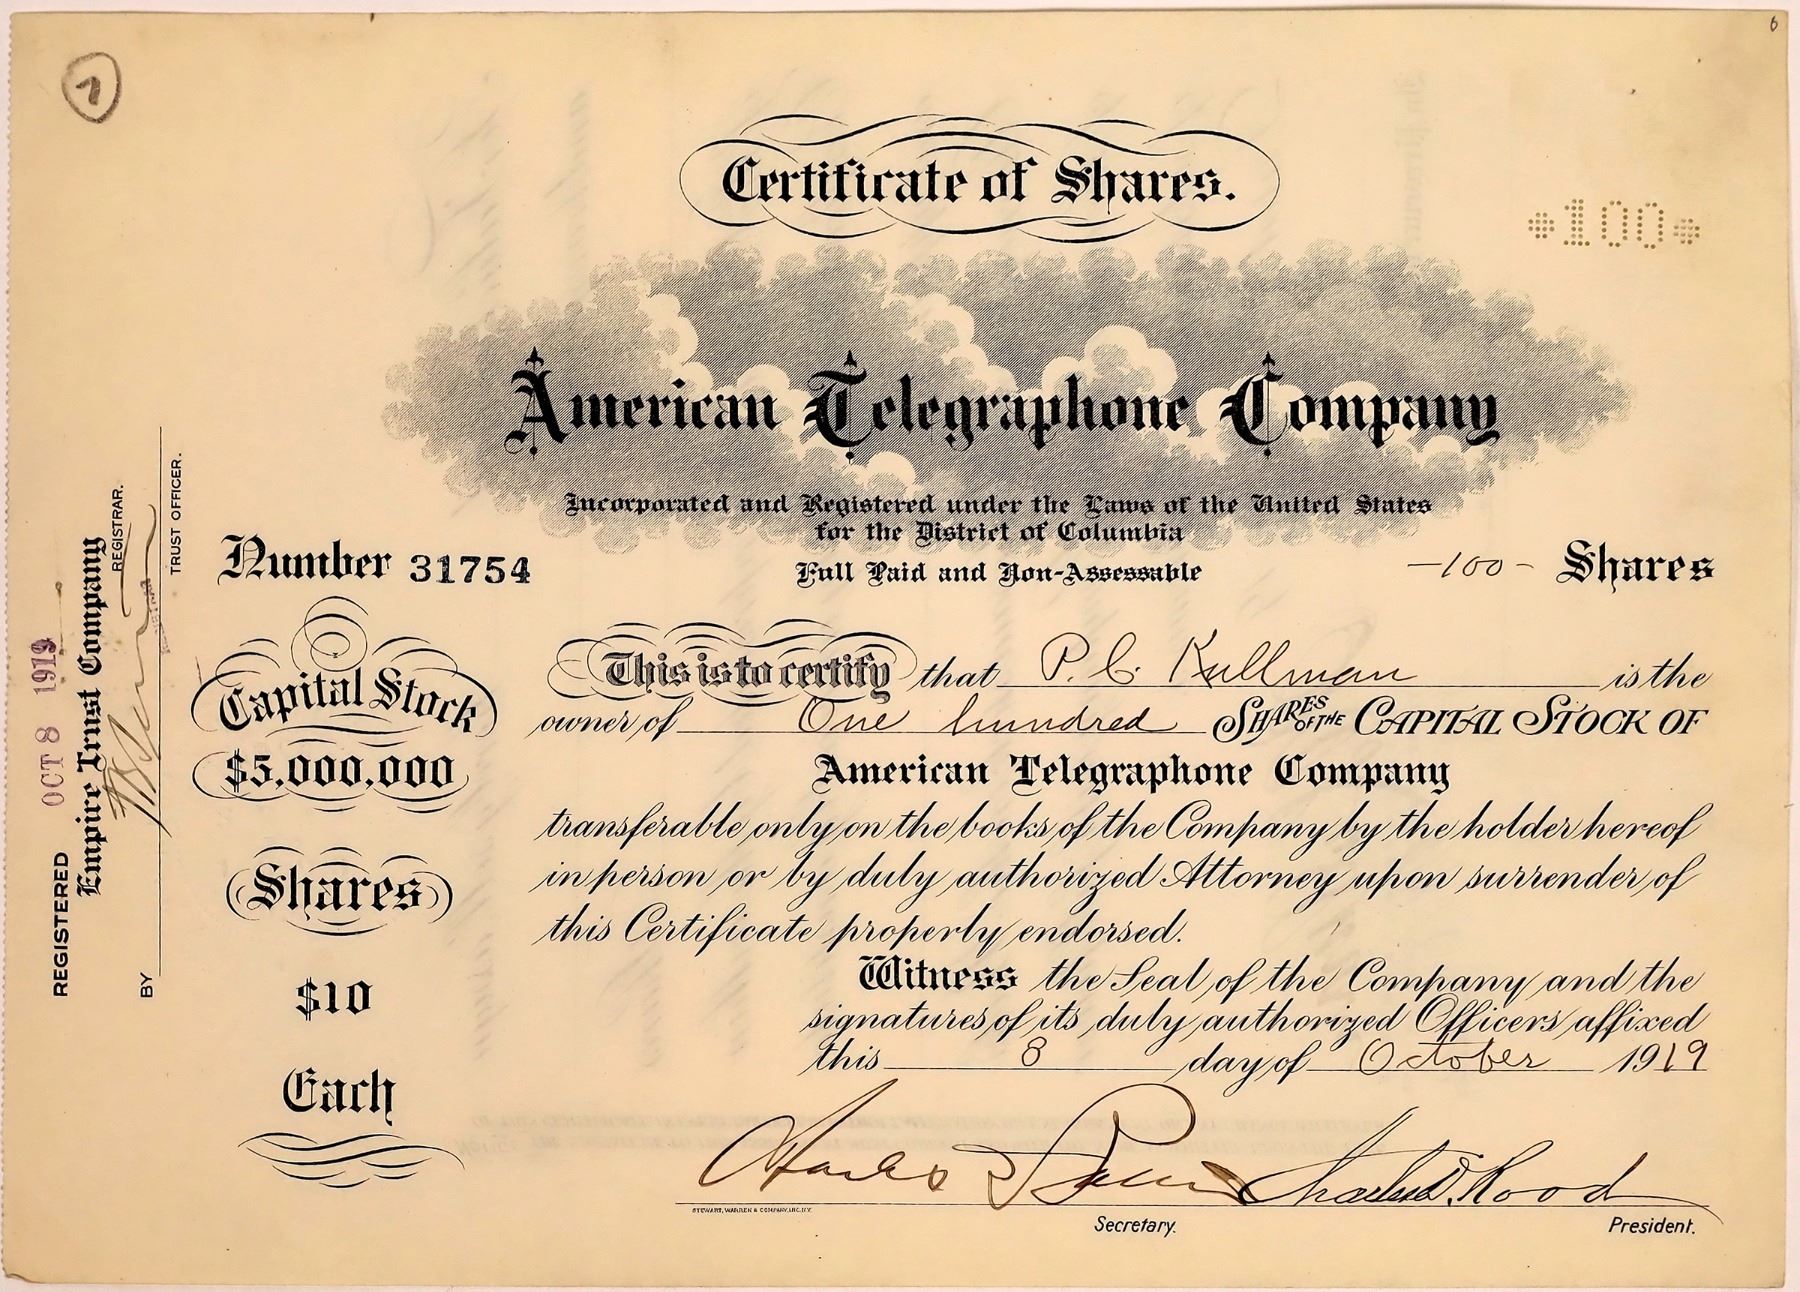 7
6
Certificate of Shares.
100
American Telegraphone Company
Incorporated and Registered under the Laws of the United States
for the District of Columbia
Number 31754
Full Paid and Non-Assessable
-100- Shares
This is to certify that P. C. Kullman is the
owner of One hundred SHARES OF THE CAPITAL STOCK OF
American Telegraphone Company
transferable only on the books of the Company by the holder hereof
in person or by duly authorized Attorney upon surrender of
this Certificate properly endorsed.
Witness the Seal of the Company and the
signatures of its duly authorized Officers affixed
this 8 day of October 1919
Charles D. Rood
STEWART, WARREN & COMPANY, INC. N.Y.
Secretary.
President.
Capital Stock
$5,000,000
Shares
$10
Each
REGISTERED OCT 8 1919
Empire Trust Company
REGISTRAR.
BY
TRUST OFFICER.